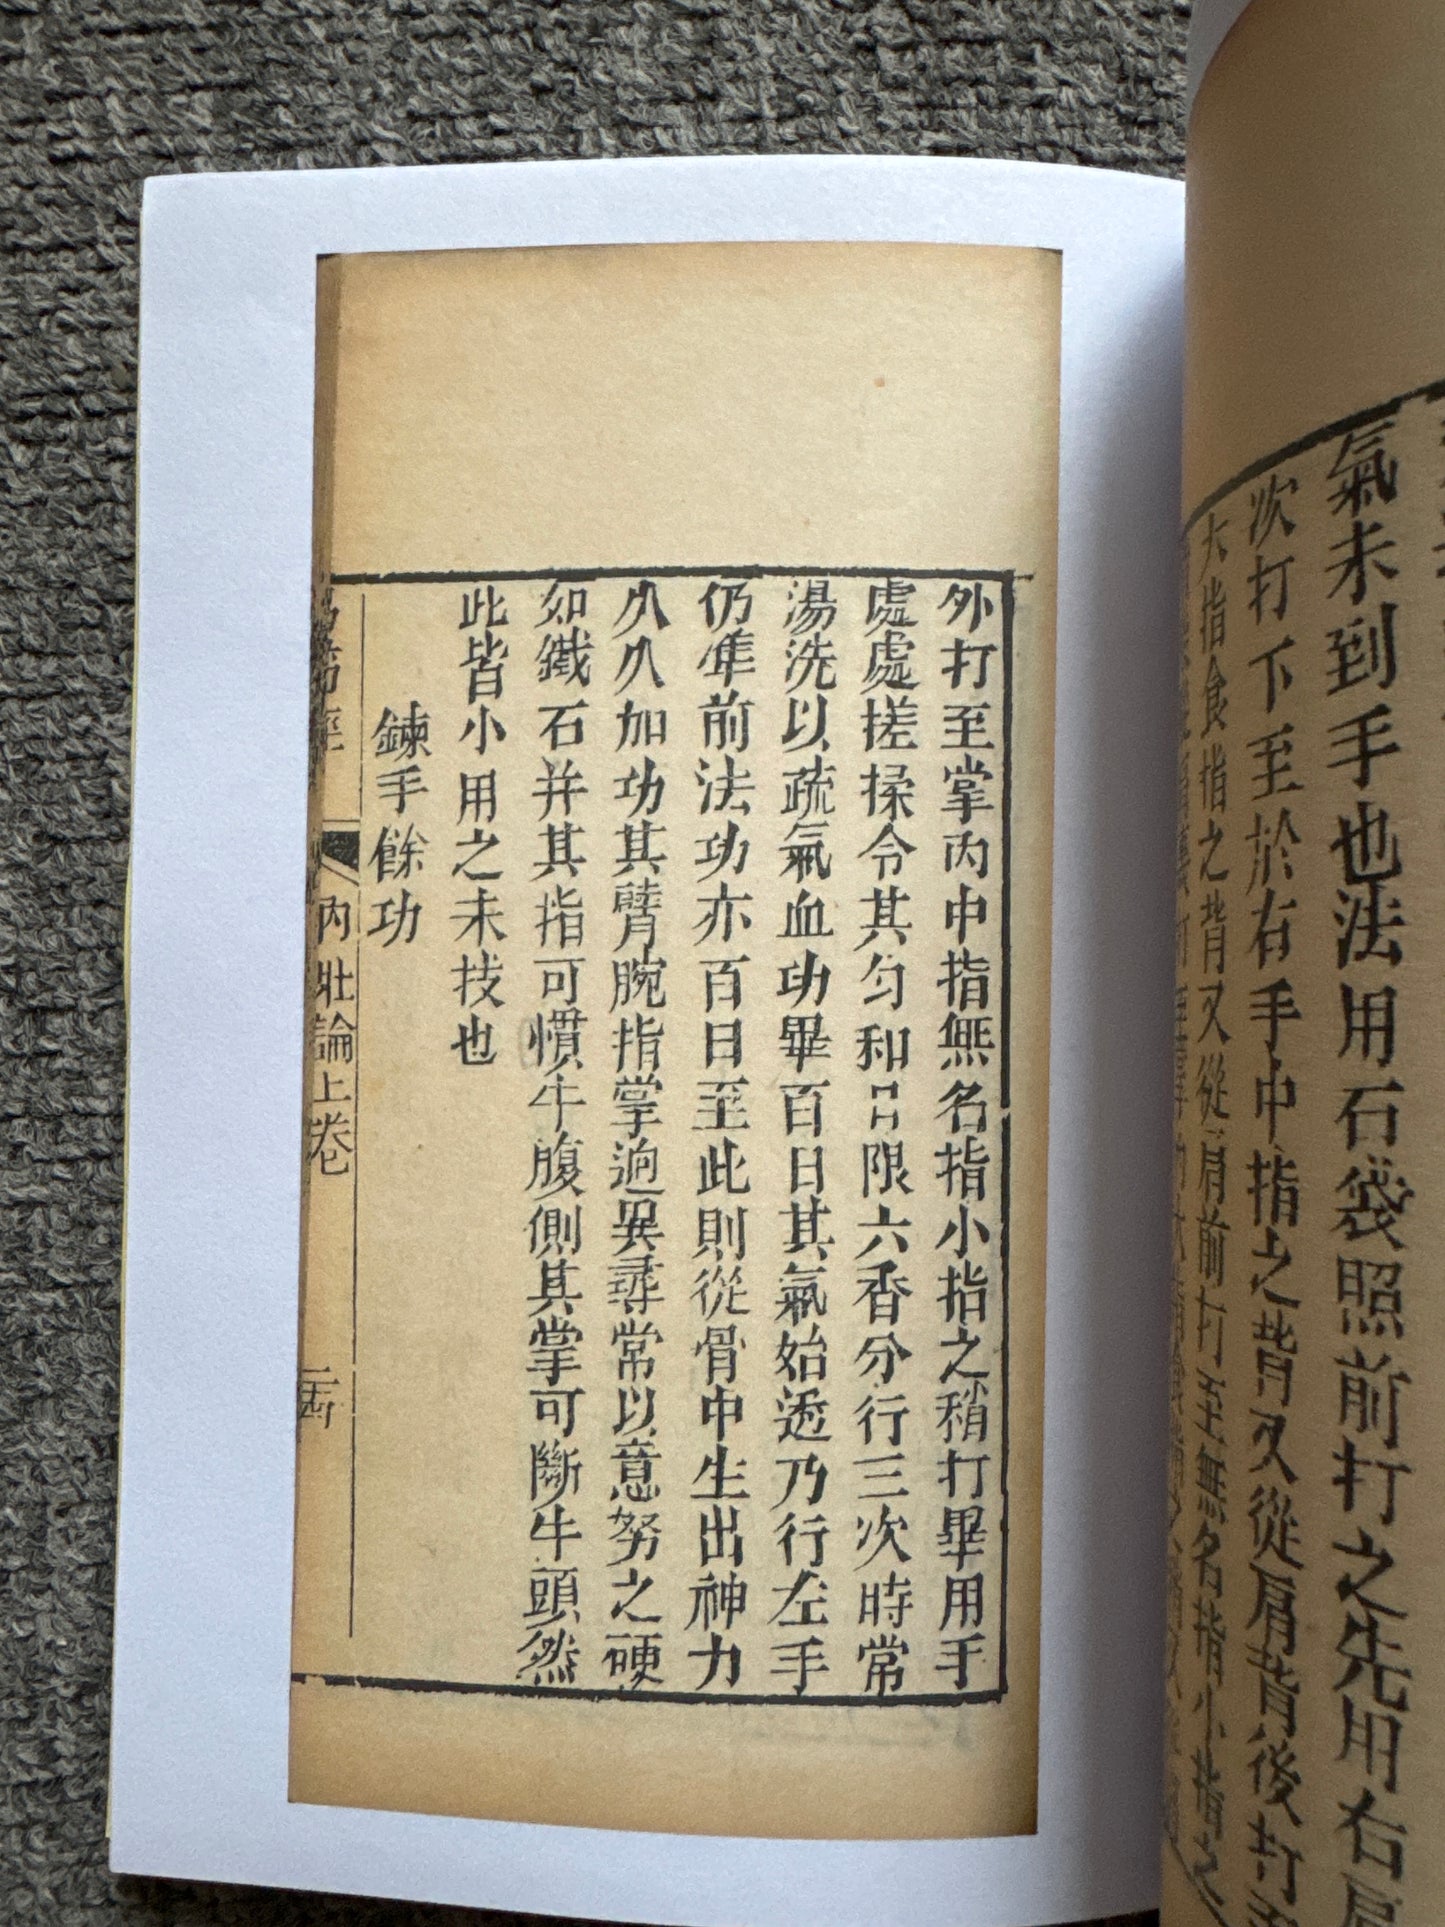 氣未到手也法用石袋照前打之先用右肩
次打下至於右手中指之背又從肩背後打至
大指食指之背又從肩前打至無名指小指之
外打至掌內中指無名指小指之稍打畢用手
處處搓揉令其勻和日限六香分行三次時常
湯洗以疏氣血功畢百日其氣始透乃行左手
仍準前法功亦百日至此則從骨中生出神力
久久加功其臂腕指掌逈異尋常以意努之硬
如鐵石并其指可慣牛腹側其掌可斷牛頭然
此皆小用之末技也
鍊手餘功
易筋經 內壯論上卷